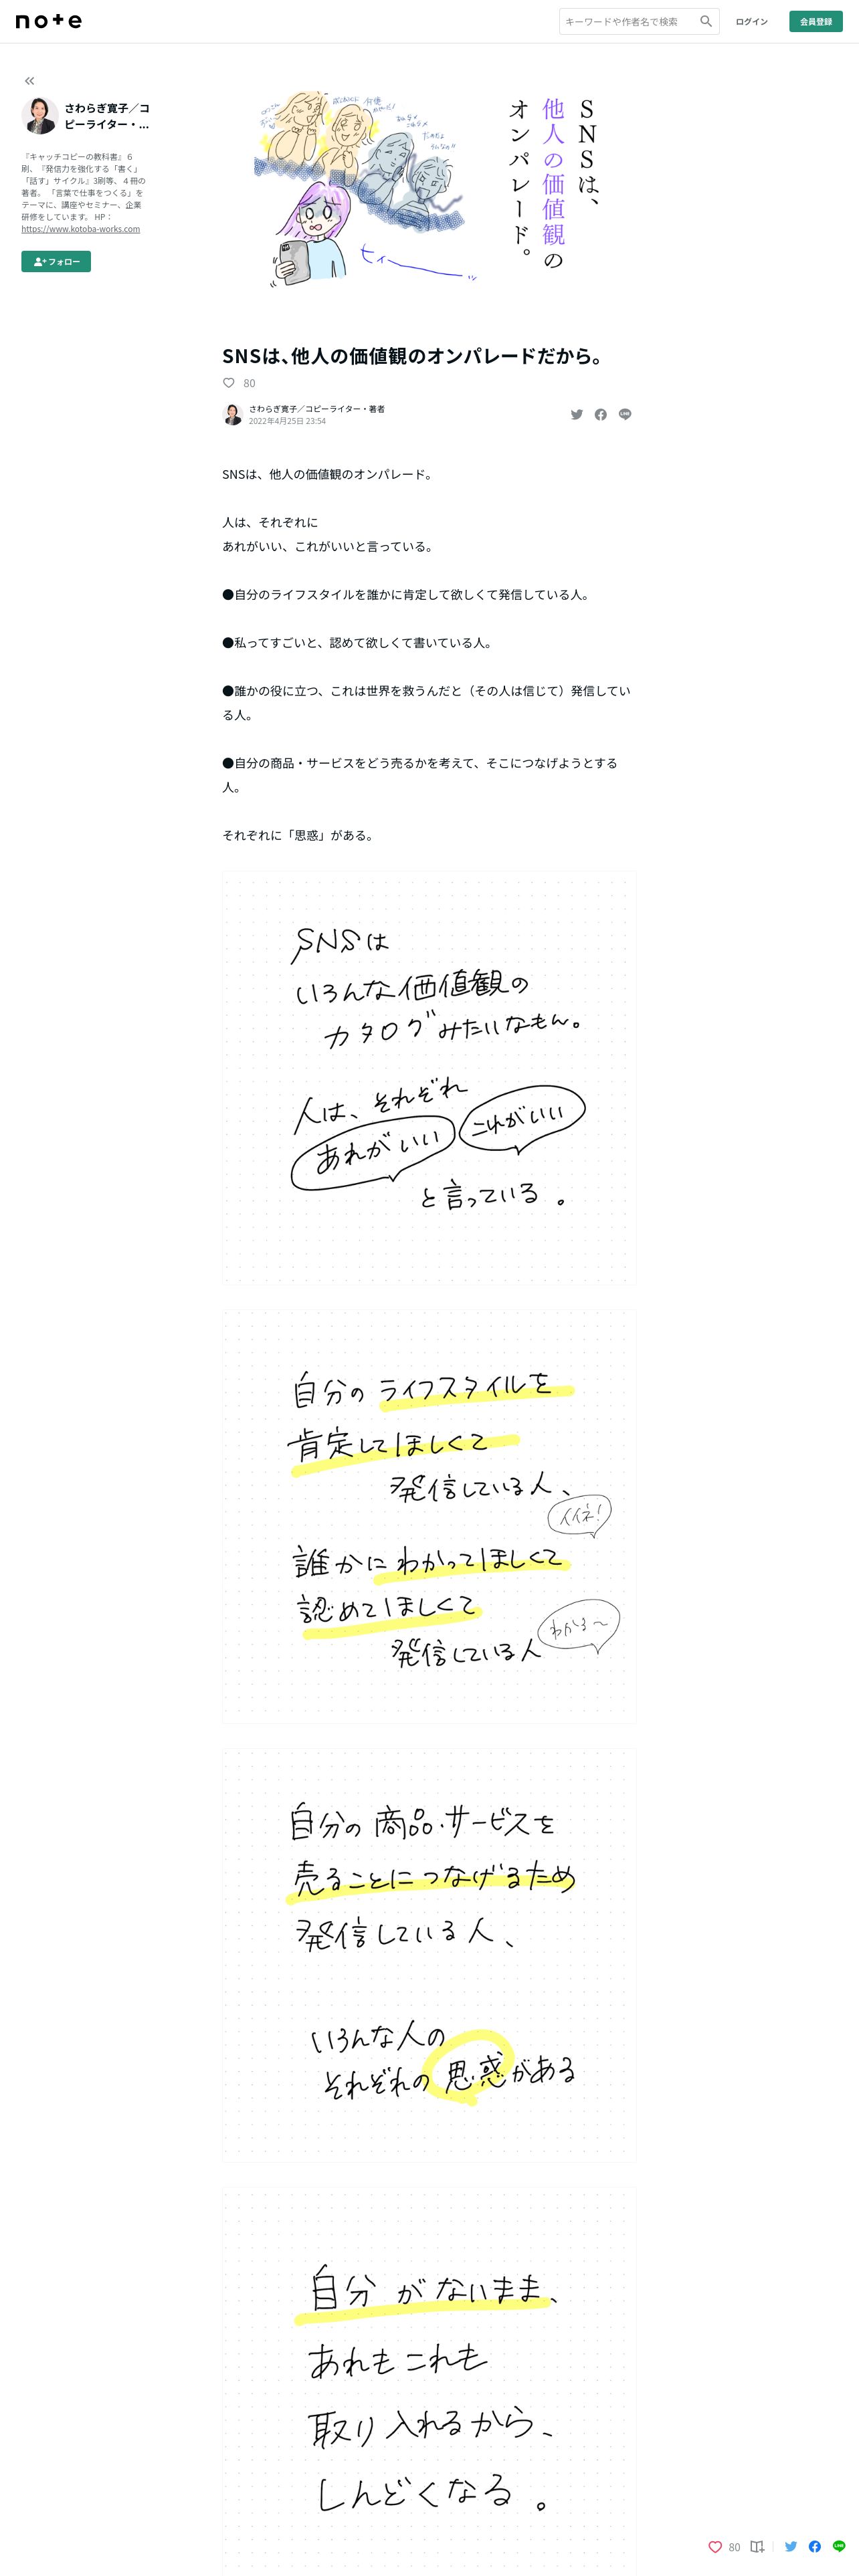 note
キーワードや作者名で検索
ログイン
会員登録
さわらぎ寛子／コ
ピーライター・...
『キャッチコピーの教科書』６
刷、『発信力を強化する「書く」
「話す」サイクル』3刷等、４冊の
著者。 「言葉で仕事をつくる」を
テーマに、講座やセミナー、企業
研修をしています。 HP：
https://www.kotoba-works.com
フォロー
SNSは、
他人の価値観の
オンパレード。
ヒィー
SNSは、他人の価値観のオンパレードだから。
80
さわらぎ寛子／コピーライター・著者
2022年4月25日 23:54
SNSは、他人の価値観のオンパレード。
人は、それぞれに
あれがいい、これがいいと言っている。
●自分のライフスタイルを誰かに肯定して欲しくて発信している人。
●私ってすごいと、認めて欲しくて書いている人。
●誰かの役に立つ、これは世界を救うんだと（その人は信じて）発信してい
る人。
●自分の商品・サービスをどう売るかを考えて、そこにつなげようとする
人。
それぞれに「思惑」がある。
SNSは
いろんな価値観の
カタログみたいなもん。
人は、それぞれ
あれがいい
これがいい
と言っている。
自分のライフスタイルを
肯定してほしくて
発信している人、
イイネ!
誰かにわかってほしくて
認めてほしくて
発信している人
わかる〜
自分の商品・サービスを
売ることにつなげるため
発信している人、
いろんな人の
それぞれの思惑がある
自分がないまま、
あれもこれも
取り入れるから、
しんどくなる。
80